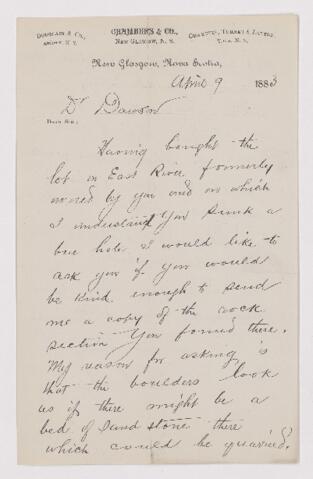 CHAMBERS & CO.,
NEW GLASGOW, N. S.
New Glasgow, Nova Scotia,
April 9 1883
Dr Dawson
Dear Sir:
Having bought the
lot on East River formerly
owned by you and on which
I understand you sunk a
bore hole I would like to
ask you if you would
be kind enough to send
me a copy of the rock
section you found there.
My reason for asking is
that the boulders look
as if there might be a
bed of sand stone there
which could be quarried?